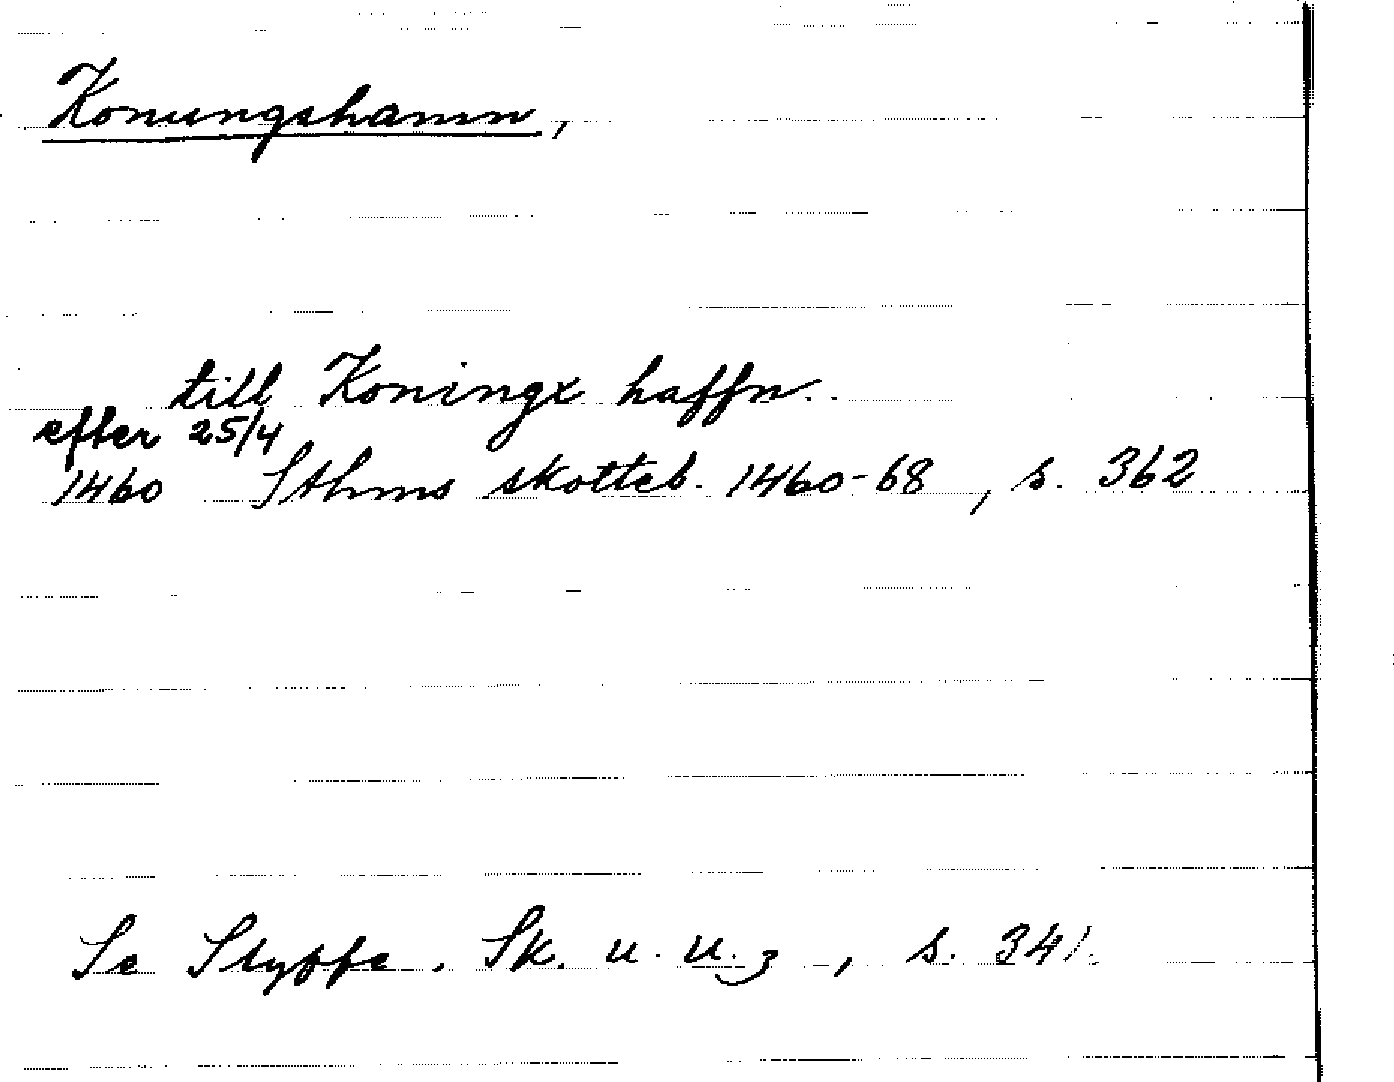 Konungshamn,
till Koningx haffn..
efter 25/4
1460 Sthms skotteb. 1460-68, s. 362
Se Styffe. Sk. u. u.3, s. 341.